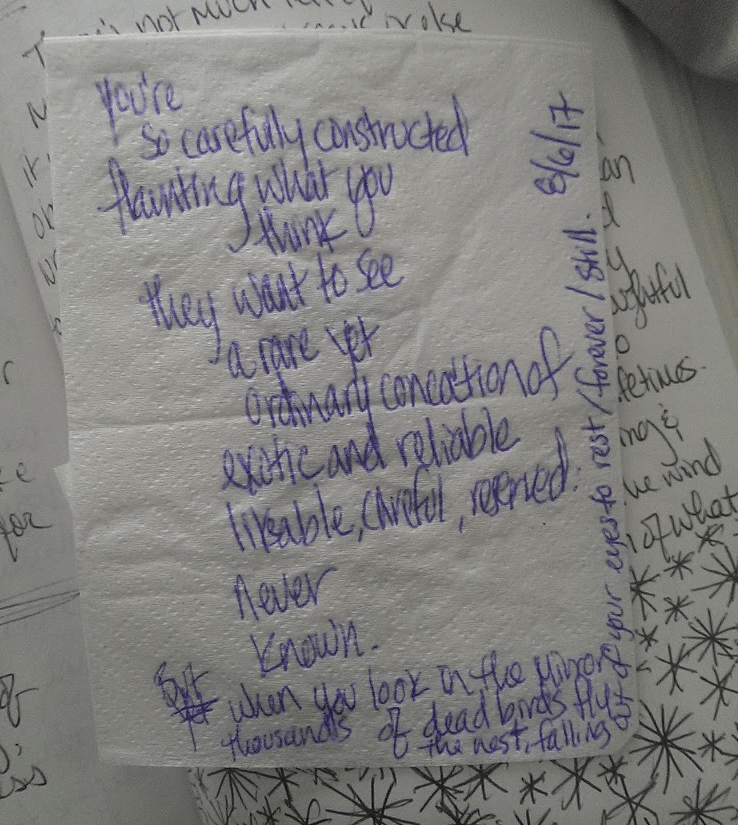 There's not much
broke
you're
so carefully constructed
flaunting what you
think
they want to see
a rare yet
ordinary concoction of
exotic and reliable
likeable, careful, reserved.
never
known.
but
when you look in the mirror
thousands of dead birds fly
the nest, falling
out of your eyes to rest / forever / still.
8/6/17
an
y
o
fetimes.
ng &
he wind
of what
r
for
of